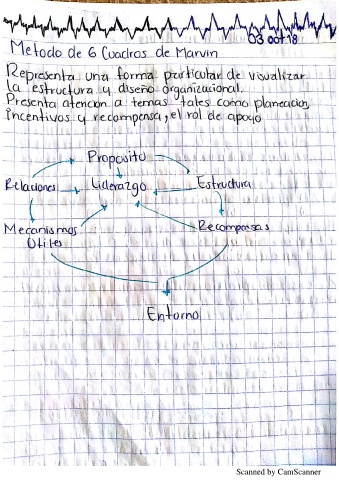 03 oct 18
Metodo de 6 Cuadros de Marvin
Representa una forma particular de visualizar
la estructura y diseño organizacional.
Presenta atención a temas tales como planeación,
incentivos y recompensa, el rol de apoyo
Proposito
Relaciones Liderazgo Estructura
Mecanismos Recompensas
Utiles
Entorno
Scanned by CamScanner